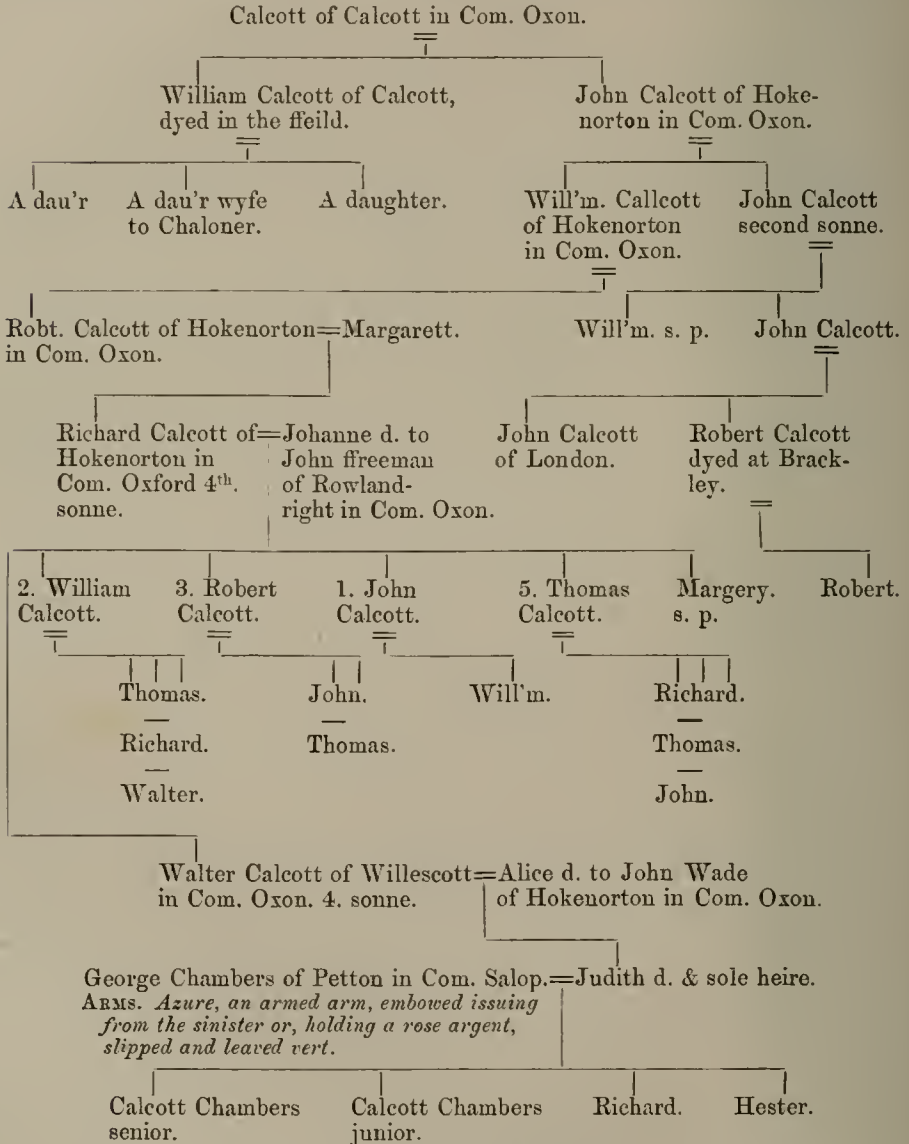 Calcott of Calcott in Com. Oxon.
William Calcott of Calcott,
dyed in the ffeild.
John Calcott of Hoke-
norton in Com. Oxon.
A dau'r
A dau'r wyfe
to Chaloner.
A daughter.
Will'm. Callcott
of Hokenorton
in Com. Oxon.
John Calcott
second sonne.
Robt. Calcott of Hokenorton=Margarett.
in Com. Oxon.
Will'm. s. p.
John Calcott.
Richard Calcott of=Johanne d. to
Hokenorton in
Com. Oxford 4th.
sonne.
John ffreeman
of Rowland-
right in Com. Oxon.
John Calcott
of London.
Robert Calcott
dyed at Brack-
ley.
2. William
Calcott.
3. Robert
Calcott.
1. John
Calcott.
5. Thomas
Calcott.
Margery.
s. p.
Robert.
Thomas.
Richard.
Walter.
John.
Thomas.
Will'm.
Richard.
Thomas.
John.
Walter Calcott of Willescott=Alice d. to John Wade
in Com. Oxon. 4. sonne.
of Hokenorton in Com. Oxon.
George Chambers of Petton in Com. Salop.=Judith d. & sole heire.
ARMS. Azure, an armed arm, embowed issuing
from the sinister or, holding a rose argent,
slipped and leaved vert.
Calcott Chambers
senior.
Calcott Chambers
junior.
Richard.
Hester.